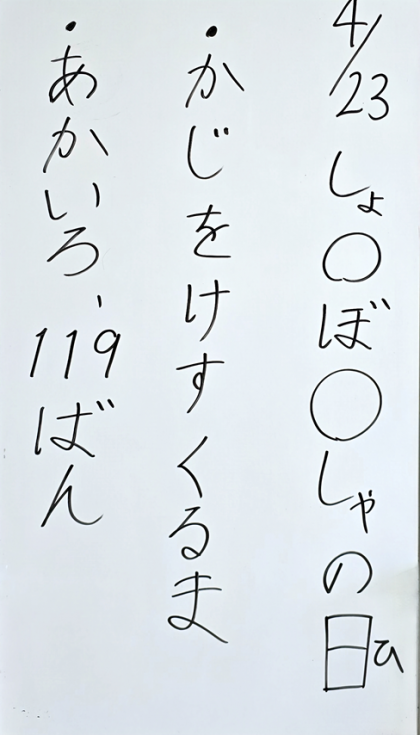 4/23 しょ〇ぼ〇しゃの日ひ
・かじをけすくるま
・あかいろ、119ばん